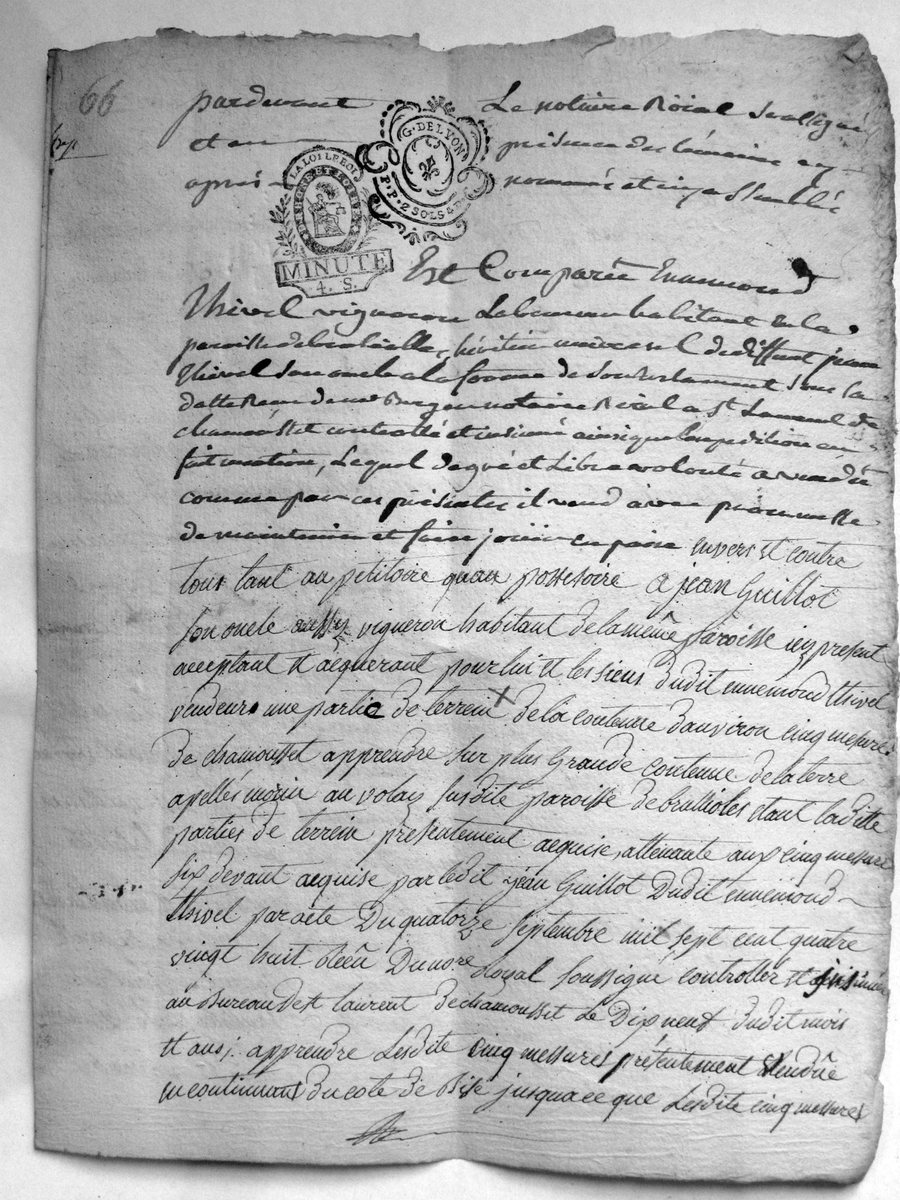 66
pardevant Le notaire Roial Soussigné
et en presence des témoins cy
après nommés et icy assemblés
G. DE LYON
P. P. 2 SOLS 8 D.
LA LOI LE ROI
MINUTE
4. S.
Est Comparû Ennemond
Thivel vigneron Laboureur habitant en la
paroisse de brulliolle, héritier universel de deffunt jean
Thivel son oncle a la forme de son testament sous sa
datte Reçu de notaire Roial a St Laurent de
chamousset controllé et insinué ainsi que l'expedition en
fait mention, Lequel de gré et Libre volonté a vendû
comme par ces présentes il vend avec promesse
de maintenir et faire jouir en paix envers et contre
tous tant au petitoire quau possesoire a jean Guillot
son oncle aussy vigneron habitant de la même paroisse icy present
acceptant et acquerant pour lui et les siens dudit ennemond thivel
vendeur une partie de terrein de la contenue d'anviron cinq mesures
de chamousset apprendre sur plus Grande contenue de la terre
apellés au volay susdite paroisse de brullioles étant la ditte
parties de terrein présentement acquise, attenante aux cinq mesure
six devant acquise par ledit jean Guillot Dudit ennemond
thivel par acte Du quatorze septembre mil sept cent quatre
vingt huit Recû Du nore Royal soussigné controller et insinué
au Bureau de st laurent de chamousset Le Dix neuf dudit mois
et an; apprendre Lesdite cinq messures présentement vendûe
en continuant du coté de Bise jusqua ce que Lesdite cinq messures